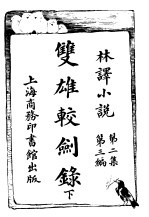 林譯小說
第二集
第三編
雙雄較劍錄
下
上海商務印書館出版